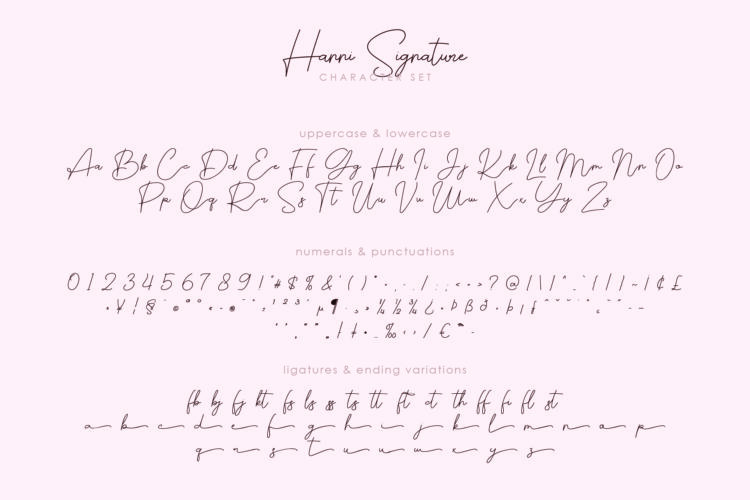 Hanni Signature
CHARACTER SET
uppercase & lowercase
Aa Bb Cc Dd Ee Ff Gg Hh Ii Jj Kk Ll Mm Nn Oo
Pp Qq Rr Ss Tt Uu Vv Ww Xx Yy Zz
numerals & punctuations
0 1 2 3 4 5 6 7 8 9 ! " # $ % & ' ( ) * + , - . / : ; < = > ? @ [ \ ] ^ _ ` { | } ~ ¢ £
¥ § © ª ° ® ² ³ µ ¶ ¼ ½ ¾ ¿ Þ ß
‰ / €
ligatures & ending variations
fb by fy kt fs ls ss ts tt ft ct th ff fi fl st
a b c d e f g h i j k l m n o p
q r s t u v w x y z